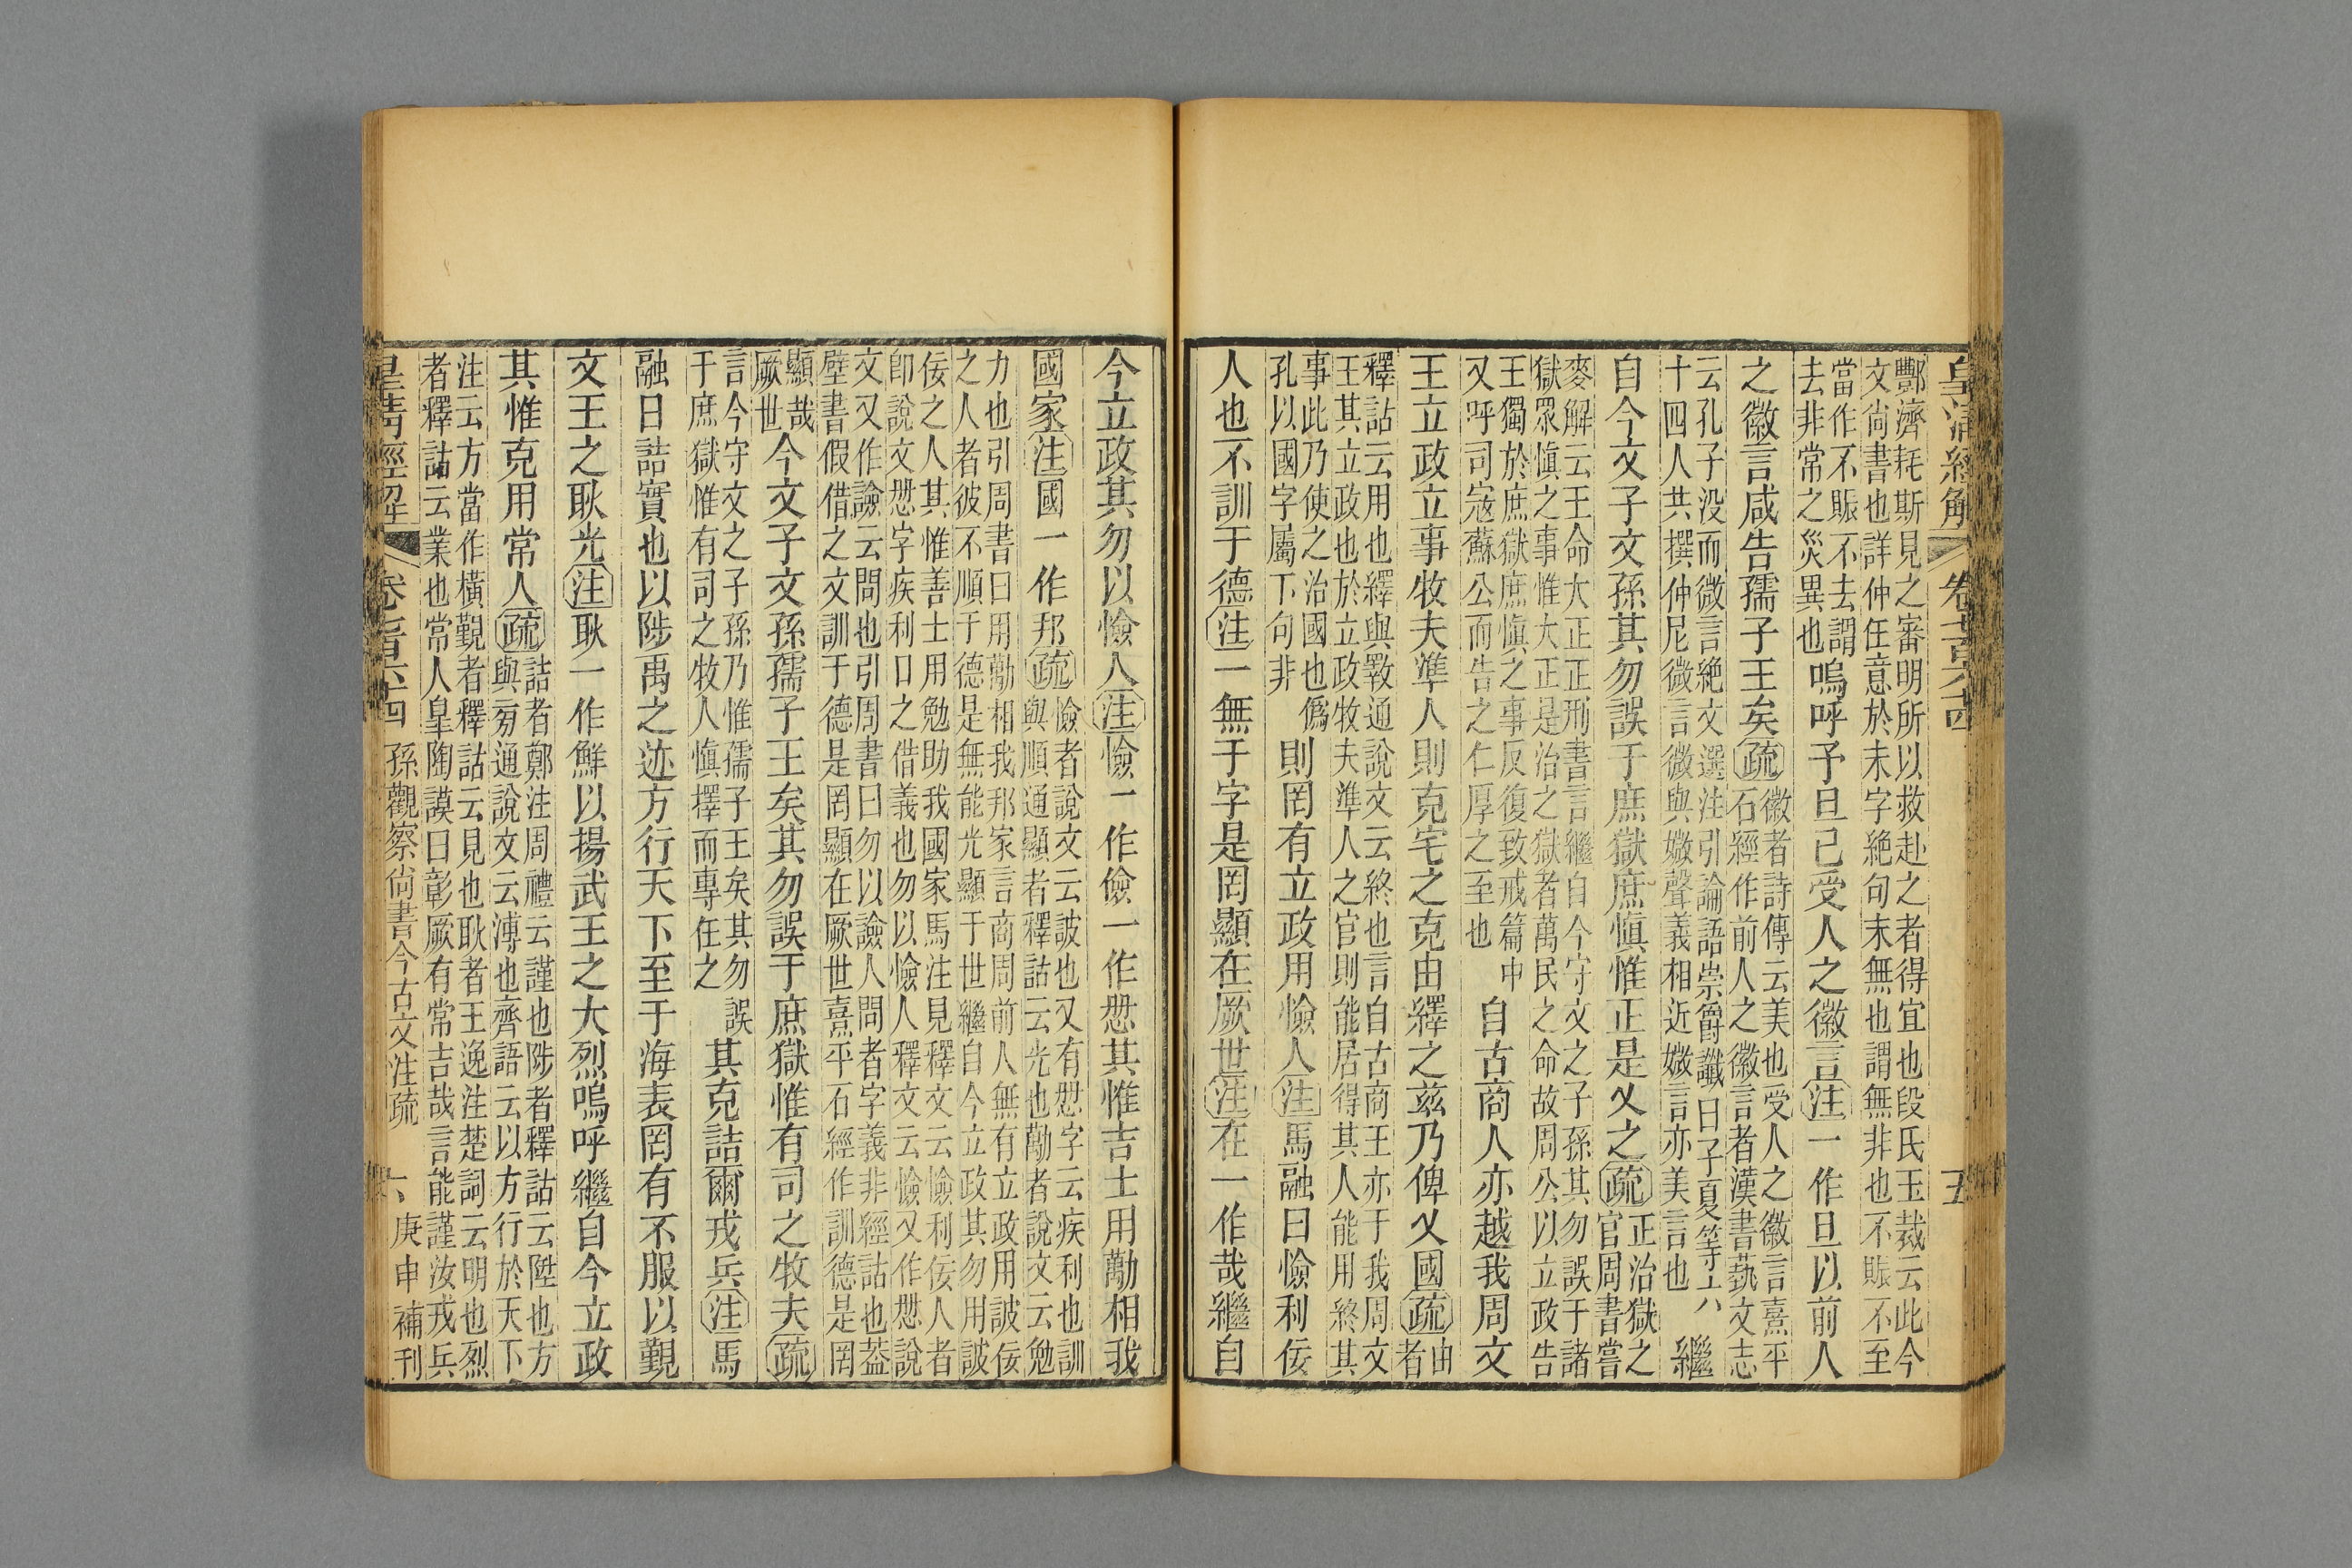 皇清經解 卷七百六十四 五
酆濟耗斯見之審明所以救赴之者得宜也段氏玉裁云此今
文尙書也詳仲任意於未字絶句末無也謂無非也不賬不至
當作不賬不去謂
去非常之災異也嗚呼予旦已受人之徽言注一作旦以前人
之徽言咸告孺子王矣疏徽者詩傳云美也受人之徽言熹平
石經作前人之徽言者漢書蓺文志
云孔子沒而微言絶文選注引論語崇爵讖曰子夏等六
十四人共撰仲尼微言微與媺聲義相近媺言亦美言也繼
自今文子文孫其勿誤于庶獄庶愼惟正是乂之疏正治獄之
官周書嘗
麥解云王命大正正刑書言繼自今守文之子孫其勿誤于諸
獄眾愼之事惟大正是治之獄者萬民之命故周公以立政告
王獨於庶獄庶愼之事反復致戒篇中
又呼司寇蘇公而告之仁厚之至也自古商人亦越我周文
王立政立事牧夫準人則克宅之克由繹之茲乃俾乂國疏由
者
釋詁云用也繹與斁通說文云終也言自古商王亦于我周文
王其立政也於立政牧夫準人之官則能居得其人能用終其
事此乃使之治國也僞
孔以國字屬下句非則罔有立政用憸人注馬融曰憸利佞
人也不訓于德注一無于字是罔顯在厥世注在一作哉繼自
今立政其勿以憸人注憸一作儉一作愸其惟吉士用勱相我
國家注國一作邦疏憸者說文云詖也又有愸字云疾利也訓
與順通顯者釋詁云光也勱者說文云勉
力也引周書曰用勱相我邦家言商周前人無有立政用詖佞
之人者彼不順于德是無能光顯于世繼自今立政其勿用誠
佞之人其惟善士用勉助我國家馬注見釋文云憸利佞人者
卽說文愸字疾利口之借義也勿以憸人釋文云憸又作愸說
文又作譣云問也引周書曰勿以譣人問者字義非經詁也葢
壁書假借之文訓于德是罔顯在厥世熹平石經作訓德是罔
顯哉
厥世今文子文孫孺子王矣其勿誤于庶獄惟有司之牧夫疏
言今守文之子孫乃惟孺子王矣其勿誤
于庶獄惟有司之牧人愼擇而專任之其克詰爾戎兵注馬
融曰詰實也以陟禹之迹方行天下至于海表罔有不服以覲
文王之耿光注耿一作鮮以揚武王之大烈嗚呼繼自今立政
其惟克用常人疏詰者鄭注周禮云謹也陟者釋詁云陞也方
與㫄通說文云溥也齊語云以方行於天下
注云方當作橫覲者釋詁云見也耿者王逸注楚詞云明也烈
者釋詁云業也常人皋陶謨曰彰厥有常吉哉言能謹汝戎兵
皇清經解 卷七百六十四 孫觀察尙書今古文注疏 六 庚申補刊